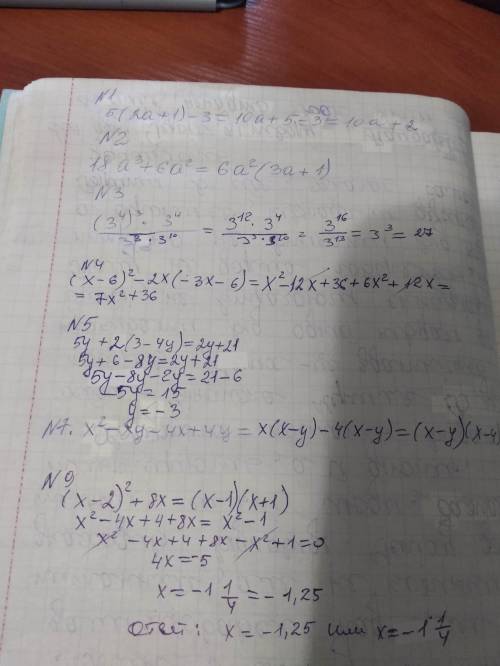 N1
5(2a+1)-3=10a+5-3=10a+2
N2
18a³+6a²=6a²(3a+1)
N3
(3⁴)³ · 3⁴ / 3³ · 3¹⁰ = 3¹² · 3⁴ / 3³ · 3¹⁰ = 3¹⁶ / 3¹³ = 3³ = 27
N4
(x-6)²-2x(-3x-6)=x²-12x+36+6x²+12x=
=7x²+36
N5
5y+2(3-4y)=2y+21
5y+6-8y=2y+21
5y-8y-2y=21-6
-5y=15
y=-3
N7. x²-xy-4x+4y=x(x-y)-4(x-y)=(x-y)(x-4)
N9
(x-2)²+8x=(x-1)(x+1)
x²-4x+4+8x=x²-1
x²-4x+4+8x-x²+1=0
4x=-5
x=-1 1/4 =-1,25
ответ: x=-1,25 или x=-1 1/4